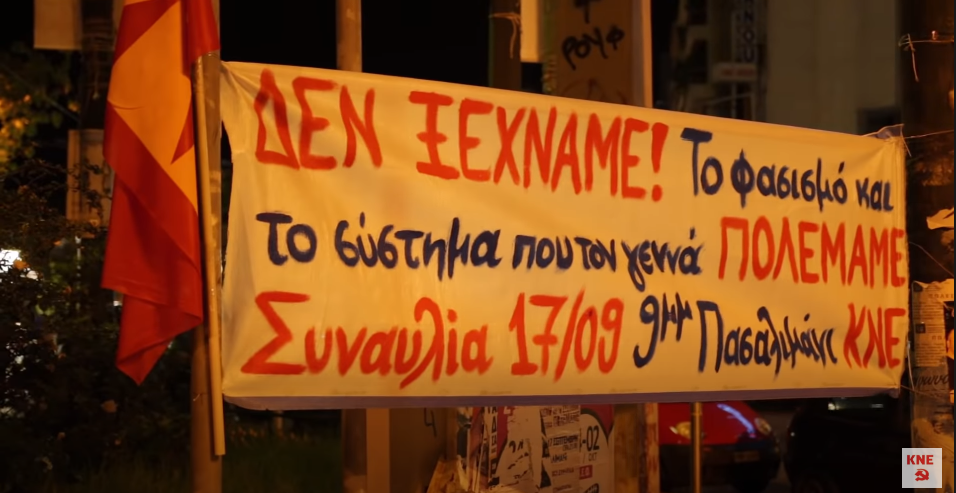 ΡΟΥΦ
ΔΕΝ ΞΕΧΝΑΜΕ! Το φασισμό και
το σύστημα που τον γεννά ΠΟΛΕΜΑΜΕ
Συναυλία 17/09 9μμ Πασαλιμάνι ΚΝΕ
-02
ΚΝΕ